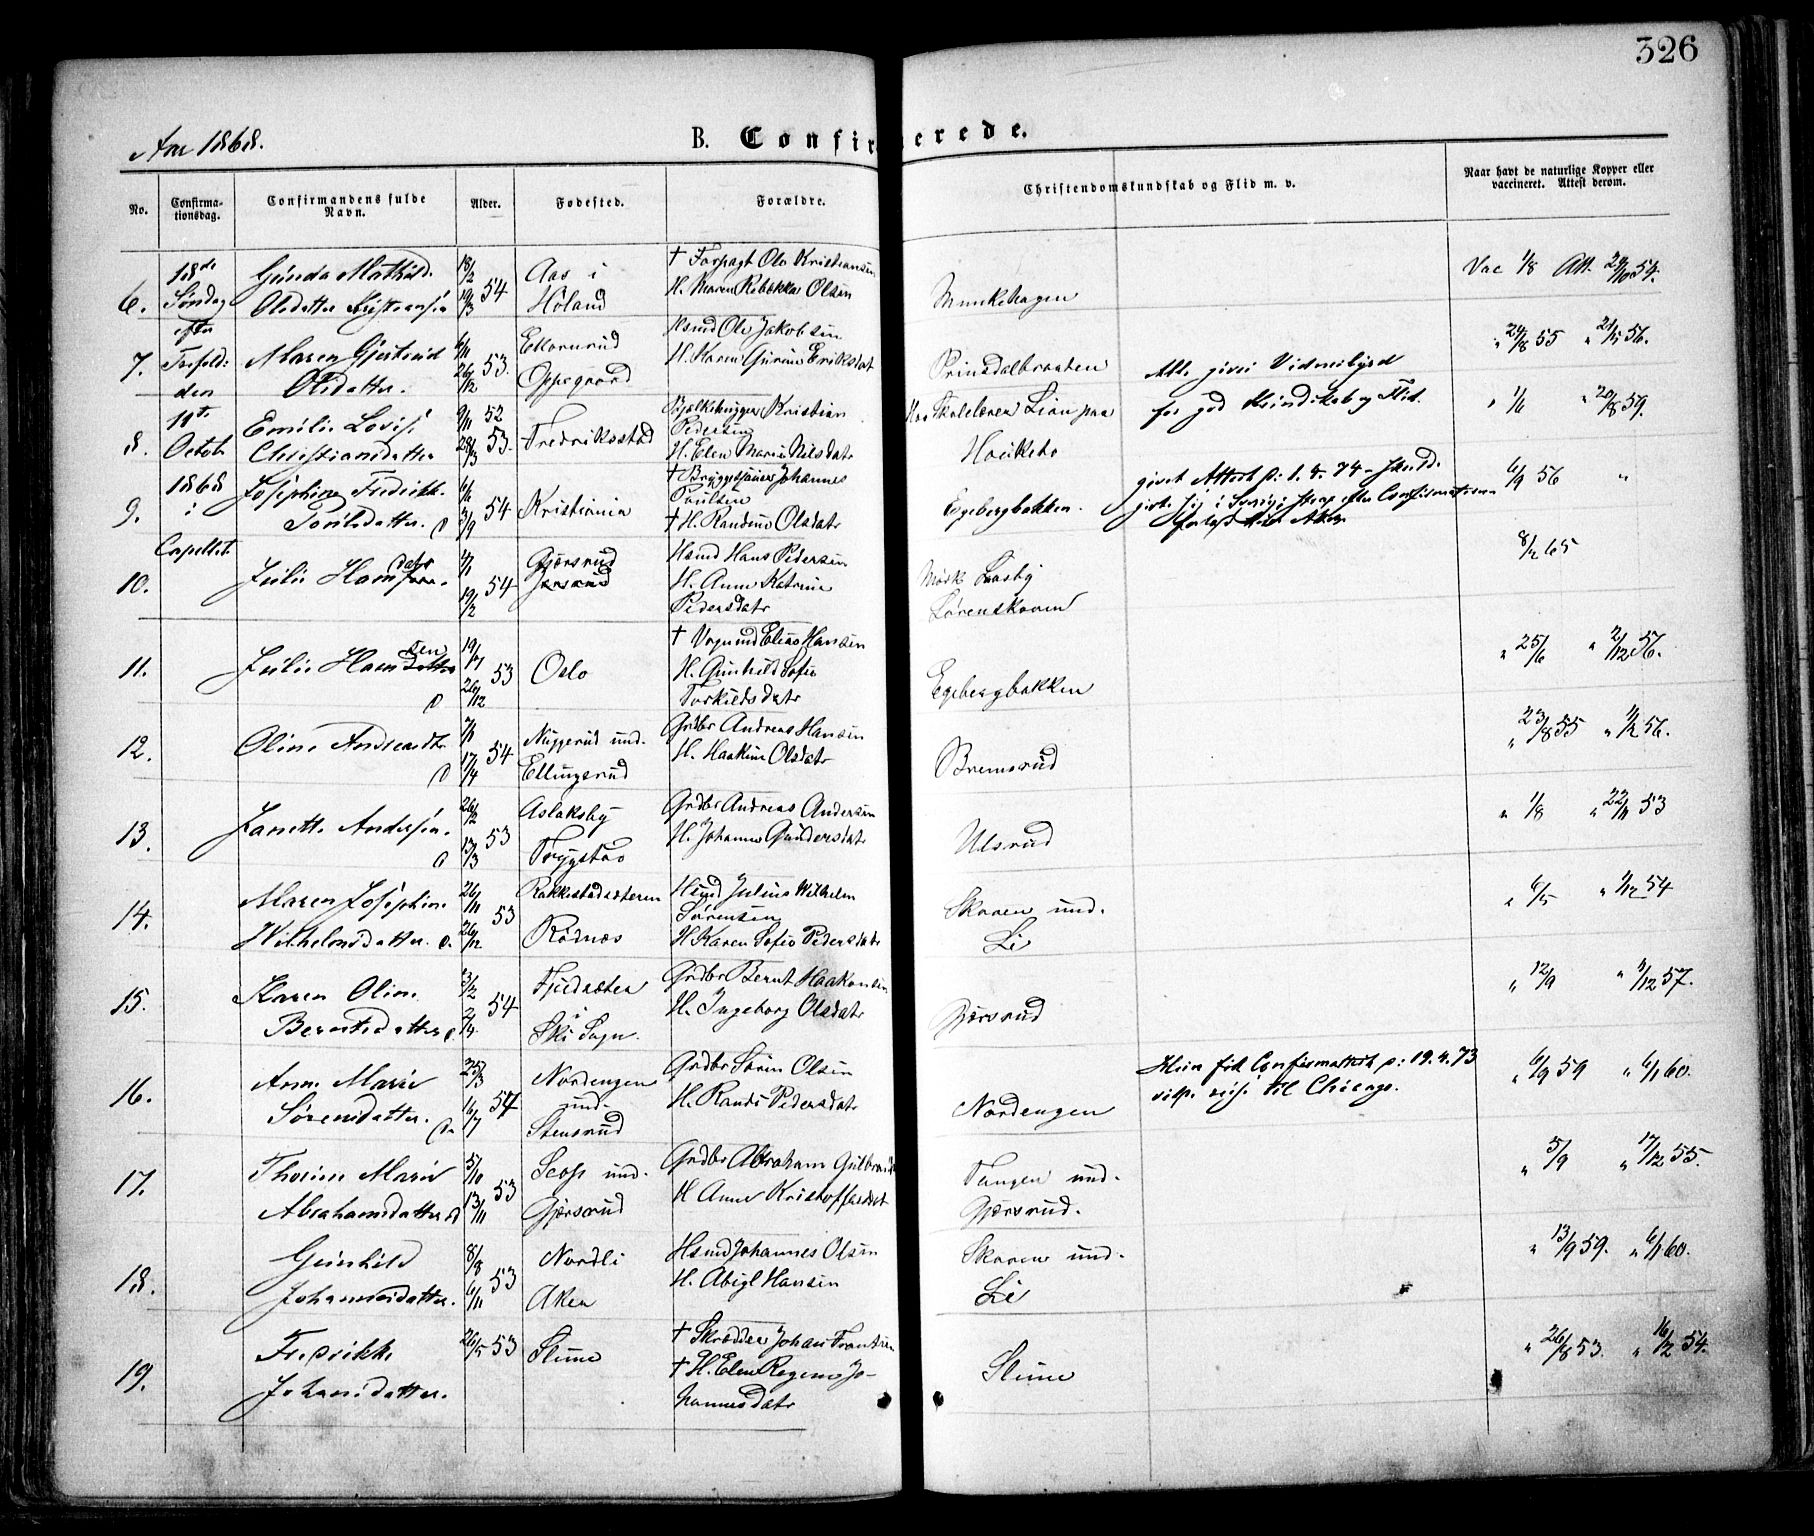 326
Aar 1868.
B. Confirmerede.
No.
Confirma-
tionsdag.
Confirmandens fulde
Navn.
Alder.
Fødested.
Forældre.
Christendomskundskab og Flid m. v.
Naar havt de naturlige Kopper eller
vaccineret. Attest derom.
18de
Søndag
efter
Trefoldi:
den
11te
Octob
1868
i
Capellet
6.
Gunda Mathild.
Olsdatter Kristiansen
18/2 54
19/3
Aas i
Høland
† Forpagt Ole Kristiansen
H. Maren Rebekka Olsen
Munkehagen
Vac 1/8 Att. 24/10 54.
7.
Maren Gjertrud
Olsdatter.
6/11 53.
26/12
Ekornrud
Oppegaard
Hsmd Ole Jakobsen
H. Karen Gurine Eriksdat
Prinsdalbraaten
" 24/8 55 " 21/5 56.
8.
Emilie Lovise
Christiansdatter
9/11 52
28/3 53.
Fredriksstad
Bjelkehugger Kristian
Pedersen
H. Elen Marie Nilsdatr
Hos Skolelærer Lian paa
Hauketo
for god Kundskab og Flid.
" 1/6 " 20/8 59.
9.
Josephine Fredrikk.
Poulsdatter.
54
3/9
Kristiania
† Bryggetjener Johannes
Poulsen
† H. Randine Olsdatr
Egebergbakken.
givet Attest p: 1. 8. 74
6/9 56 "
10.
Julie Hansdatr
4/1 54
19/2
Gjersrud
Hsmd Hans Pedersen
H. Anne Katrine
Pedersdatr
Mosk Laasby
Lørenskoven
8/2 65
11.
Julie Hansen
53
26/12
Oslo
† Vognmd Elias Hansen
H. Gunhild Sofie
Torkildsdatr
Egebergbakken
" 25/6 " 2/12 56.
12.
Oline Andreasdtr
7/1 54
17/4
Nuggerud und.
Ellingsrud
Grdbr Andreas Hansen
H. Haakine Olsdatr
Bremsrud
" 23/8 55 " 1/2 56.
13.
Janette Andersen.
26/2 53
13/3
Aslaksby
Trygstad
Grdbr Andreas Andersen
H. Johanne Gundersdatr
Ulsrud
" 1/8 " 22/11 53
14.
Maren Josephine
Wilhelmsdatter.
26/11 53
26/12
Rakkestadsæteren
Rødnæs
Hsmd Julius Wilhelm
Sørensen
H Karen Sofie Pedersdatr
Skoven und.
Li
" 6/5 " 1/12 54
15.
Karen Oline
Berntsdatter
3/2 54
2/4
Fjeldsæter
i
Ski Sogn.
Grdbr Bernt Haakonsen
H. Ingeborg Olsdatr
Gjersrud
" 12/9 " 11/12 57.
16.
Anne Marie
Sørensdatter.
25/3 54
16/7
Nordengen
und.
Stensrud
Grdbr Søren Olsen
H. Randi Pedersdatr
Nordengen
Hun fik Confirmattest p: 19. 4. 73
vilde reise til Chicago.
" 6/9 59 " 6/1 60.
17.
Thorine Marie
Abrahamsdatter
5/10 53
13/11
und.
Gjersrud
Grdbr Abraham Gulbrands
H Anne Kristoffersdat
Tangen und.
Gjersrud.
" 5/9 " 17/12 55.
18.
Gunhild
Johannesdatter.
8/8 53
6/11
Nordli
Aker
Hsmd Johannes Olsen
H. Abigl Hansen
Skoven und.
Li
" 13/9 59. " 6/1 60.
19.
Fredrikke
Johansdatter.
26/5 53
Slime
† Skrædder Johan Frantzen
† H. Elen Regine Jo-
hannesdatr
Slime
" 26/8 53. " 16/2 54.